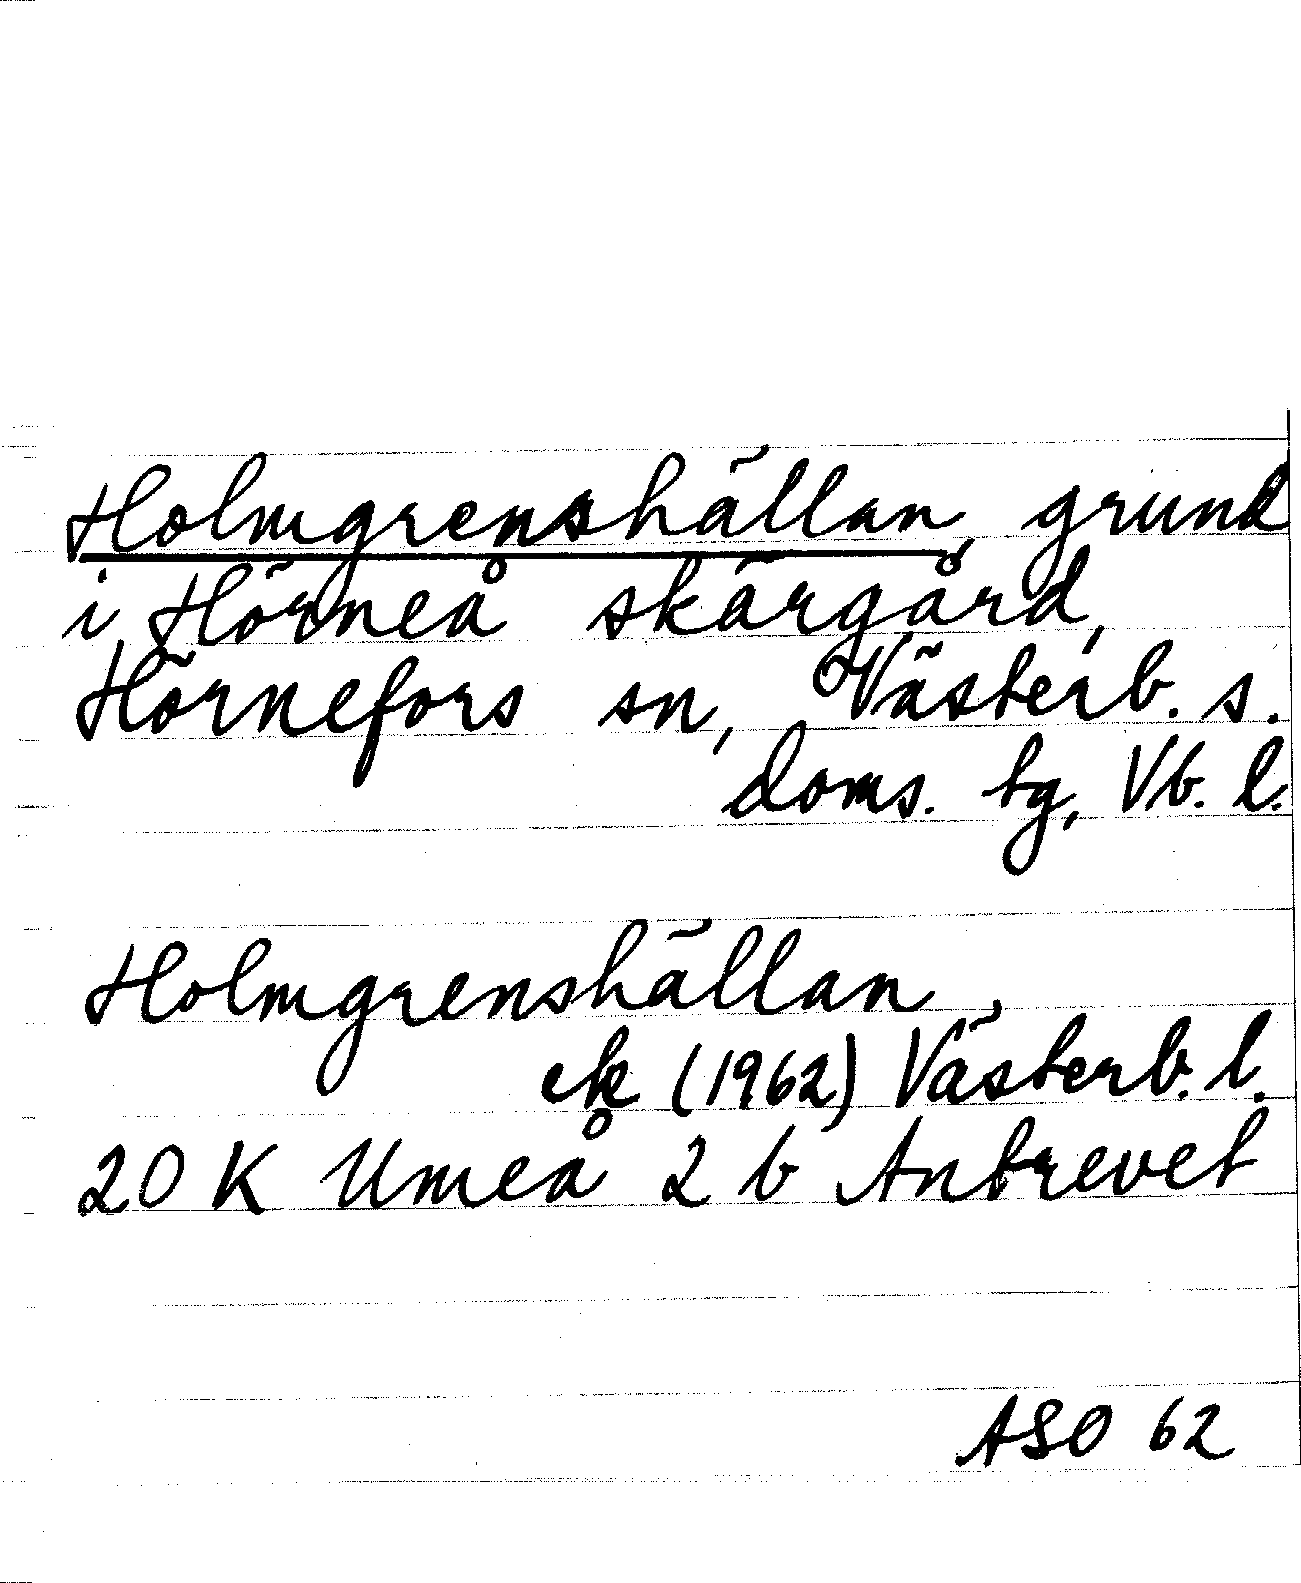 Holmgrenshällan, grund
i Hörneå skärgård,
Hörnefors sn, Västerb. s.
doms. tg, Vb. l.
Holmgrenshällan.
ek (1962) Västerb. l.
20 K Umeå 2 b Anbrevet
ASO 62